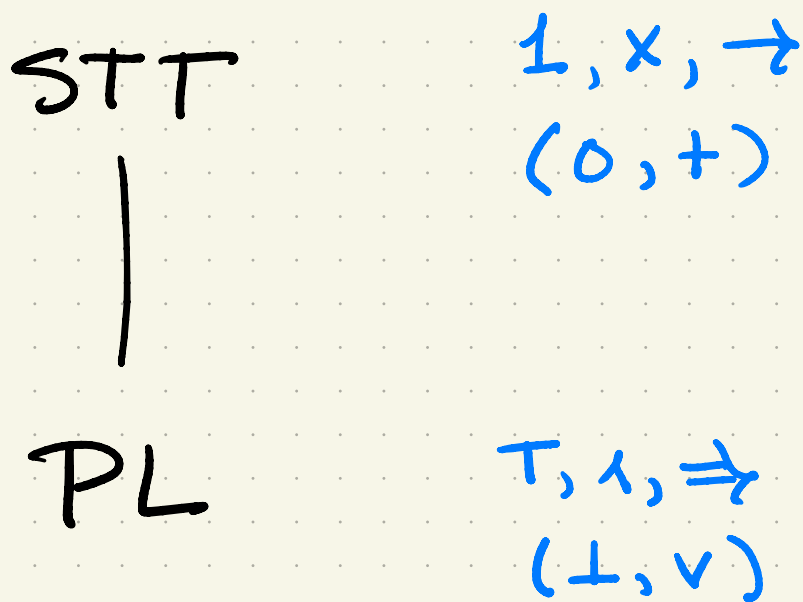 STT
1, x, →
(0, +)
PL
⊤, ∧, ⇒
(⊥, ∨)